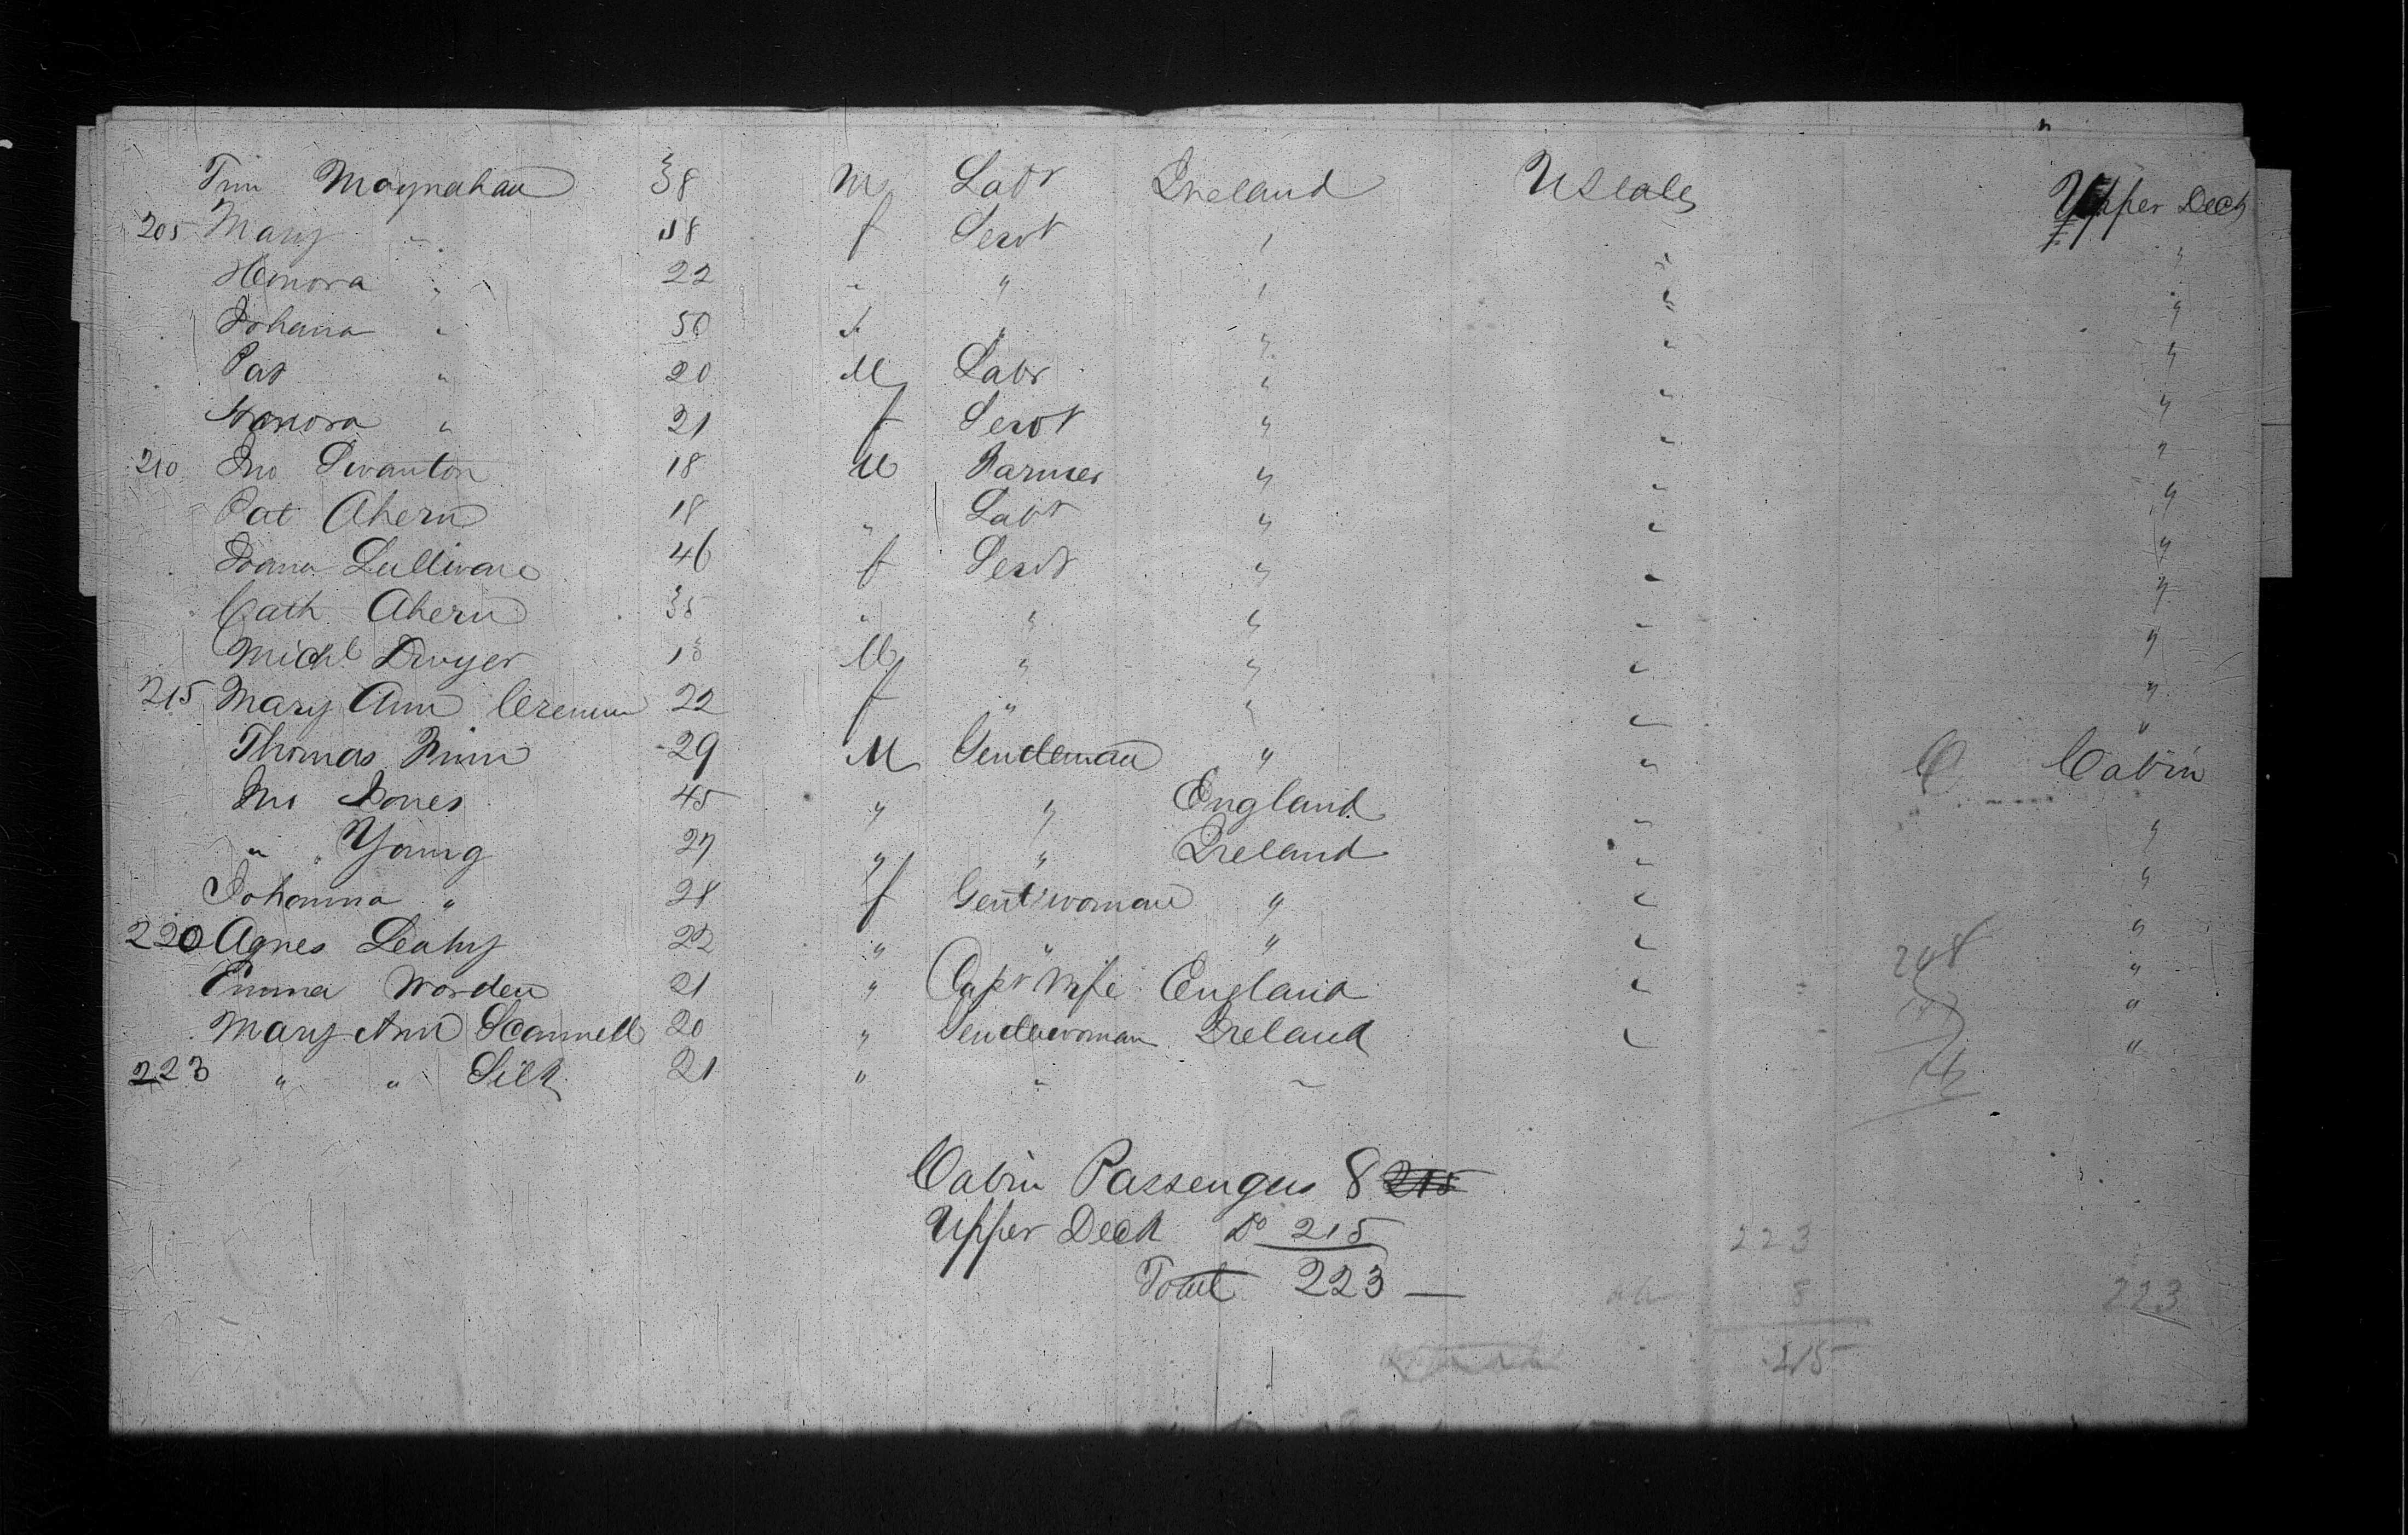 Tim Moynahan 38 M Labr Ireland U States Upper Deck
205 Mary " 18 f Servt " " "
Honora " 22 " " " " "
Johana " 50 f " " " "
Pat " 20 M Labr " " "
Honora " 21 f Servt " " "
210 Jno Swanton 18 M Farmer " " "
Pat Ahern 18 " Labr " " "
Joana Sullivan 46 f Servt " " "
Cath Ahern 35 " " " " "
Michl Dwyer 18 M " " " "
215 Mary Ann 22 f " " " "
Thomas Finn 29 M Gentleman " " C Cabin
Jno Jones 45 " " England " "
" Young 27 " " Ireland " "
Johanna " 28 f Gentwoman " " "
220 Agnes Leahy 22 " " " " "
Emma Worden 21 " Capt Wife England " "
Mary Ann Scannell 20 " Gentlewoman Ireland " "
223 " " Silk 21 " " "
248
16
Cabin Passengers 8 215
Upper Deck Do 215
Total 223
223
8
215
223